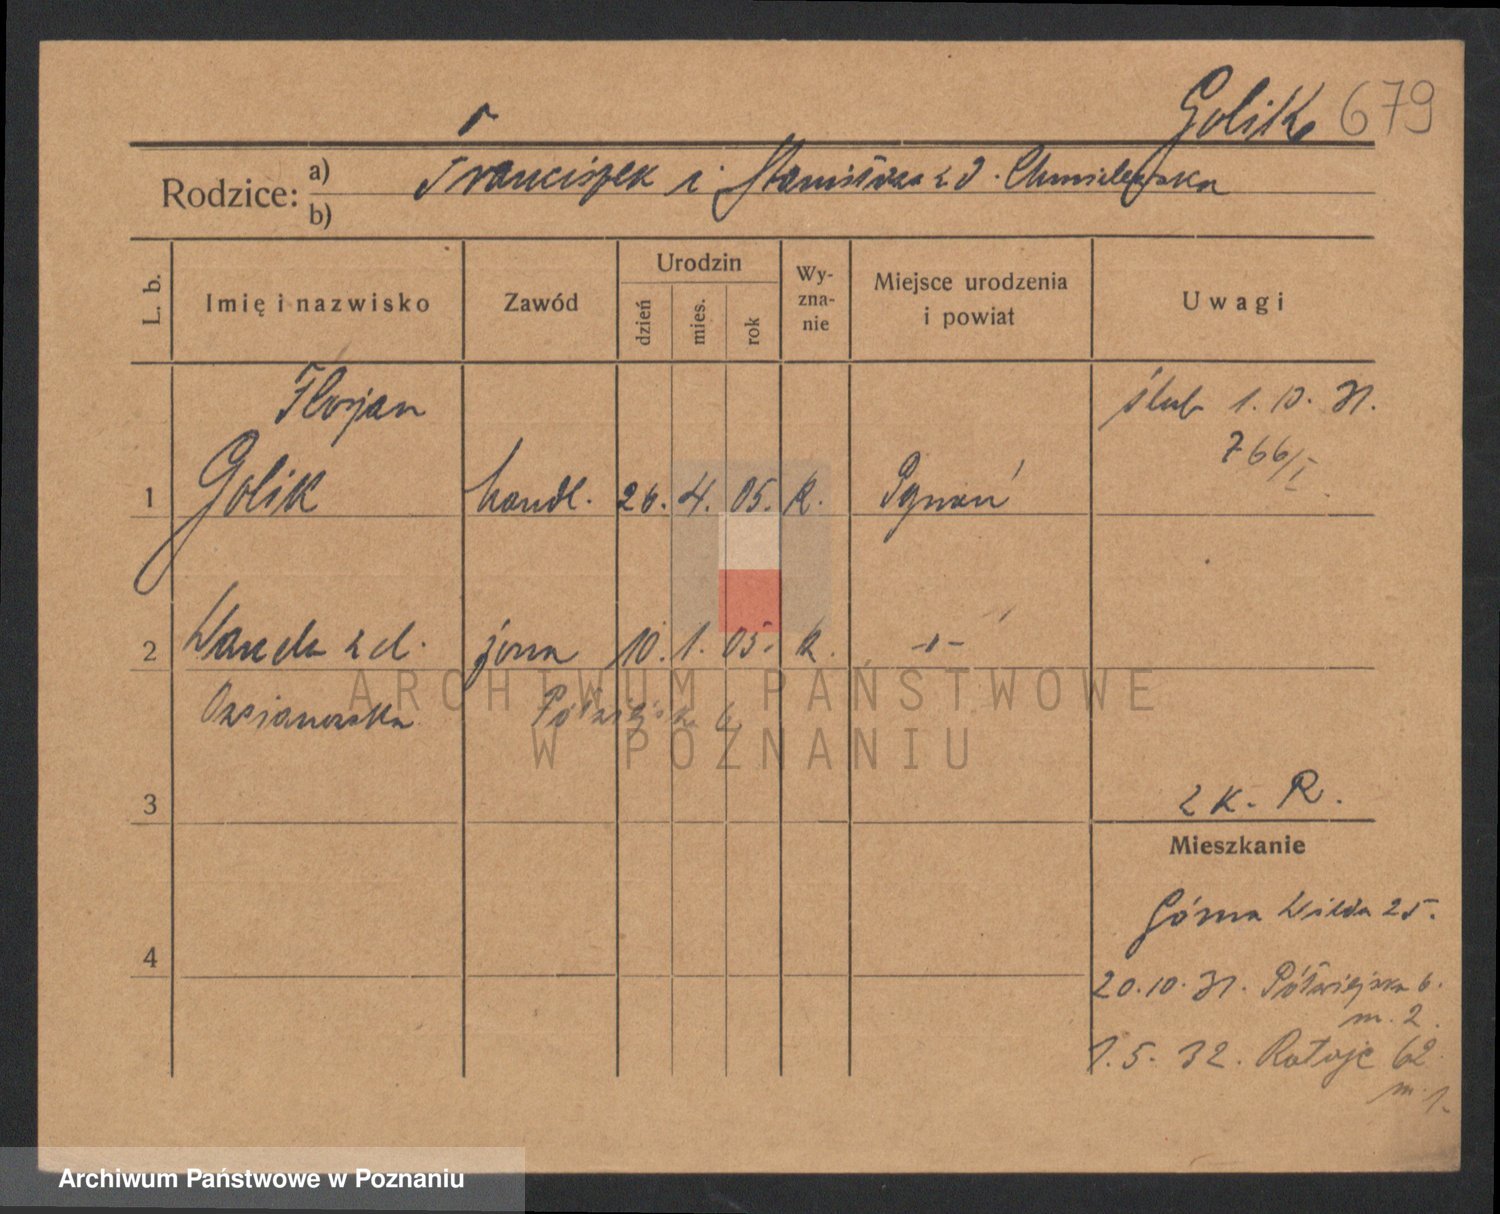 Golik 679
Rodzice: a) Franciszek i Stanisława z d. Chmielewska
b)
L. b. Imię i nazwisko Zawód Urodzin dzień mies. rok Wy-zna-nie Miejsce urodzenia i powiat Uwagi
Florjan ślub 1. 10. 31.
766/I
1 Golik handl. 26. 4. 05. k. Poznań
2 Wanda z d. żona 10. 1. 05. k. -"-
Półwiejska 6
ARCHIWUM PAŃSTWOWE
W POZNANIU
3 z k. R.
Mieszkanie
Górna Wilda 25.
4
20.10.31. Półwiejska 6.
m. 2.
1.5.32. Rataje 62
m. 1.
Archiwum Państwowe w Poznaniu